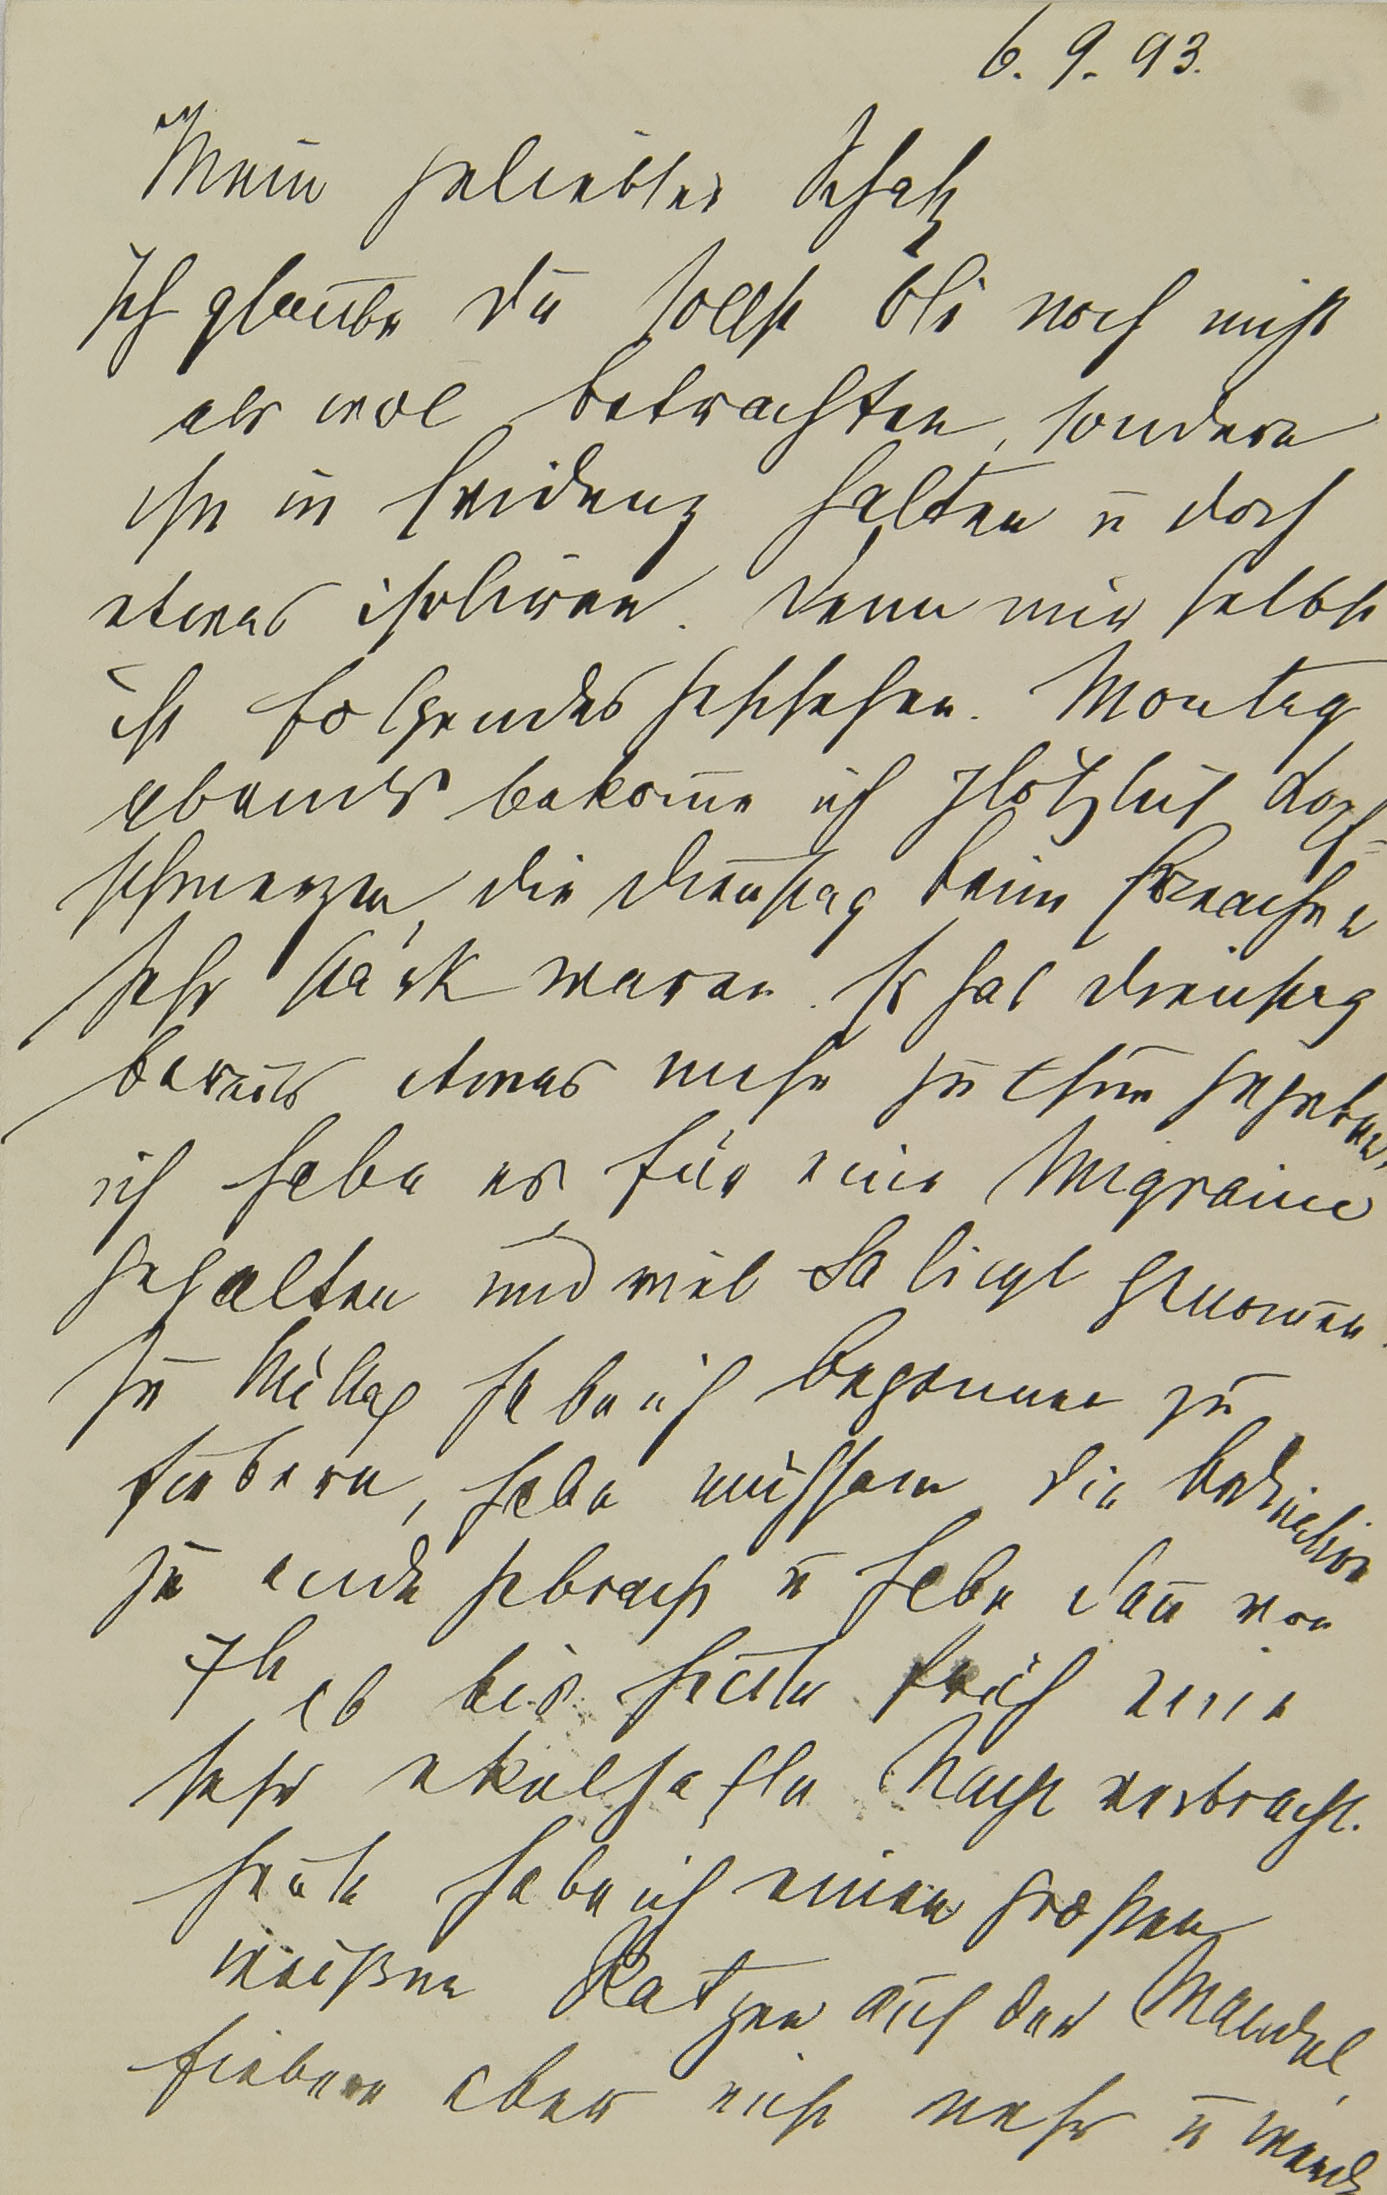 6. 9. 93.
Mein geliebter Schatz
Ich glaube Du sollst Oli noch nicht
als wol betrachten, sondern
ihn in Evidenz halten u doch
etwas isoliren. Denn mir selbst
ist folgendes geschehen. Montag
abends bekom̅e ich plötzlich Kopf-
schmerzen, die Dienstag beim Erwachen
sehr stark waren. Es hat Dienstag
bereits etwas mehr zu thun gegeben,
ich habe es für eine Migraine
gehalten und viel Salicyl genom̅en.
Zu Mittag habe ich begonnen zu
fiebern, habe mühsam die Ordination
zu ende gebracht u habe dan̅ von
7h ab bis heute früh eine
sehr ekelhafte Nacht verbracht.
Heute habe ich einen großen
weißen Patzen auf der Mandel,
fiebere aber nicht mehr u werde